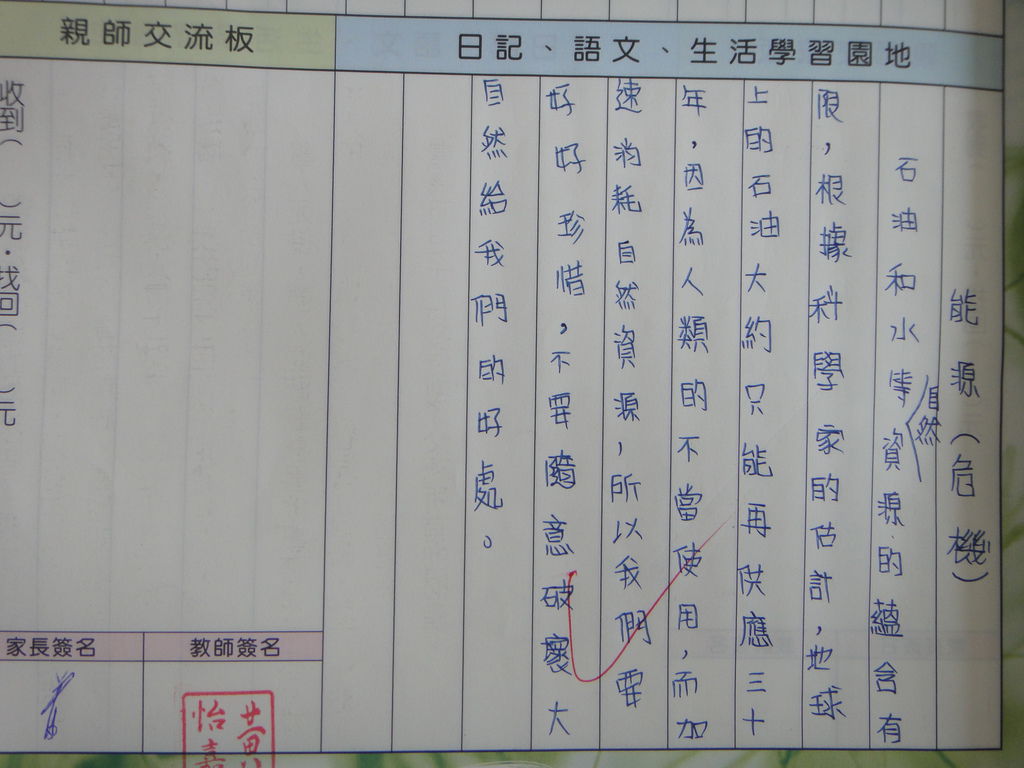 日記、語文、生活學習園地
能源(危機)
石油和水等自然資源的蘊含有
限，根據科學家的估計，地球
上的石油大約只能再供應三十
年，因為人類的不當使用，而加
速消耗自然資源，所以我們要
好好珍惜，不要隨意破壞大
自然給我們的好處。
親師交流板
收到( )元．找回( )元
教師簽名
家長簽名
黃
怡嘉